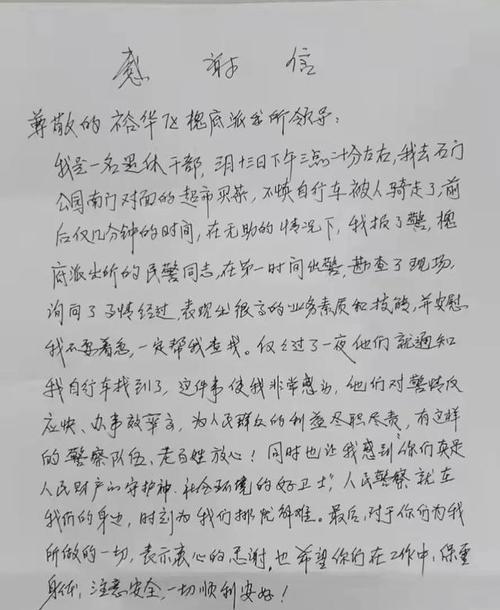 感谢信
尊敬的裕华区槐底派出所领导：
我是一名退休干部，三月十三日下午三点二十分左右，我去石门
公园南门对面的超市买菜，不慎自行车被人骑走了，前
后仅几分钟的时间，在无助的情况下，我报了警，槐
底派出所的民警同志，在第一时间出警，勘查了现场，
询问了事情经过，表现出很高的业务素质和技能，并安慰
我不要着急，一定帮我查找。仅经过了一夜他们就通知
我自行车找到了，这件事使我非常感动，他们对警情反
应快、办事效率高，为人民群众的利益尽职尽责，有这样
的警察队伍、老百姓放心！同时也让我感到"你们真是
人民财产的守护神、社会环境的好卫士"，人民警察就在
我们的身边，时刻为我们排忧解难。最后，对于你们为我
所做的一切，表示衷心的感谢，也希望你们在工作中，保重
身体，注意安全，一切顺利安好！